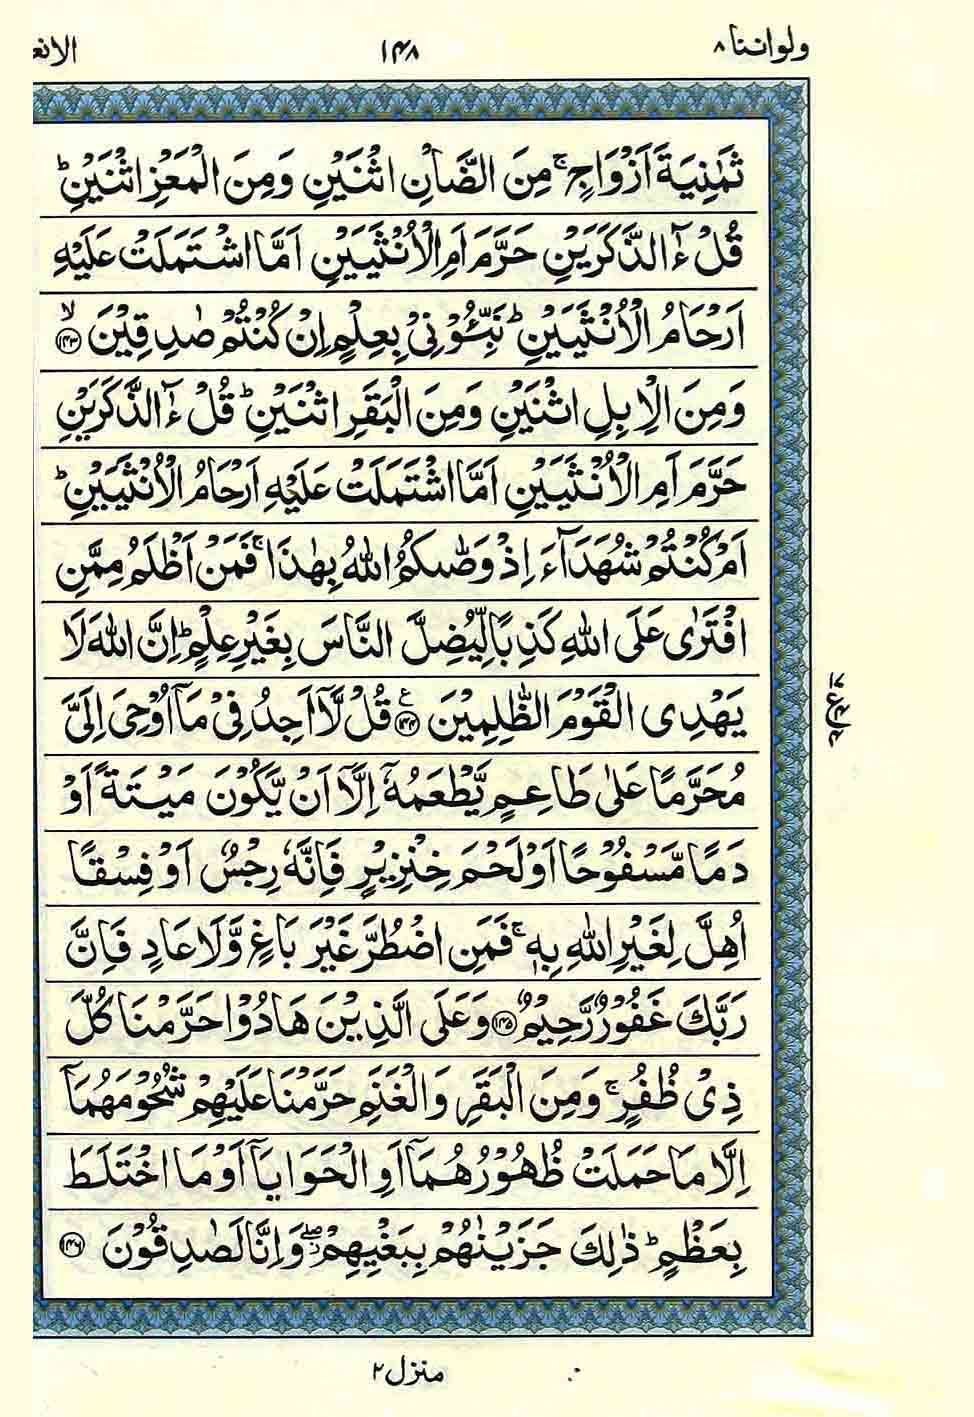 ولواننا ٨
١٤٨
الانع
ثَمٰنِيَةَ اَزْوَاجٍ ۚ مِنَ الضَّاْنِ اثْنَيْنِ وَمِنَ الْمَعْزِ اثْنَيْنِ ؕ
قُلْ ءٰٓالذَّكَرَيْنِ حَرَّمَ اَمِ الْاُنْثَيَيْنِ اَمَّا اشْتَمَلَتْ عَلَيْهِ
اَرْحَامُ الْاُنْثَيَيْنِ ؕ نَبِّـُٔوْنِيْ بِعِلْمٍ اِنْ كُنْتُمْ صٰدِقِيْنَ ۙ﴿١٤٣﴾
وَمِنَ الْاِبِلِ اثْنَيْنِ وَمِنَ الْبَقَرِ اثْنَيْنِ ؕ قُلْ ءٰٓالذَّكَرَيْنِ
حَرَّمَ اَمِ الْاُنْثَيَيْنِ اَمَّا اشْتَمَلَتْ عَلَيْهِ اَرْحَامُ الْاُنْثَيَيْنِ ؕ
اَمْ كُنْتُمْ شُهَدَآءَ اِذْ وَصّٰىكُمُ اللّٰهُ بِهٰذَا ۚ فَمَنْ اَظْلَمُ مِمَّنِ
افْتَرٰى عَلَى اللّٰهِ كَذِبًا لِّيُضِلَّ النَّاسَ بِغَيْرِ عِلْمٍ ؕ اِنَّ اللّٰهَ لَا
يَهْدِى الْقَوْمَ الظّٰلِمِيْنَ ﴿١٤٤﴾ قُلْ لَّآ اَجِدُ فِيْ مَآ اُوْحِيَ اِلَيَّ
مُحَرَّمًا عَلٰى طَاعِمٍ يَّطْعَمُهٗٓ اِلَّآ اَنْ يَّكُوْنَ مَيْتَةً اَوْ
دَمًا مَّسْفُوْحًا اَوْ لَحْمَ خِنْزِيْرٍ فَاِنَّهٗ رِجْسٌ اَوْ فِسْقًا
اُهِلَّ لِغَيْرِ اللّٰهِ بِهٖ ۚ فَمَنِ اضْطُرَّ غَيْرَ بَاغٍ وَّلَا عَادٍ فَاِنَّ
رَبَّكَ غَفُوْرٌ رَّحِيْمٌ ﴿١٤٥﴾ وَعَلَى الَّذِيْنَ هَادُوْا حَرَّمْنَا كُلَّ
ذِيْ ظُفُرٍ ۚ وَمِنَ الْبَقَرِ وَالْغَنَمِ حَرَّمْنَا عَلَيْهِمْ شُحُوْمَهُمَآ
اِلَّا مَا حَمَلَتْ ظُهُوْرُهُمَآ اَوِ الْحَوَايَآ اَوْ مَا اخْتَلَطَ
بِعَظْمٍ ؕ ذٰلِكَ جَزَيْنٰهُمْ بِبَغْيِهِمْ ۖ وَاِنَّا لَصٰدِقُوْنَ ﴿١٤٦﴾
منزل ٢